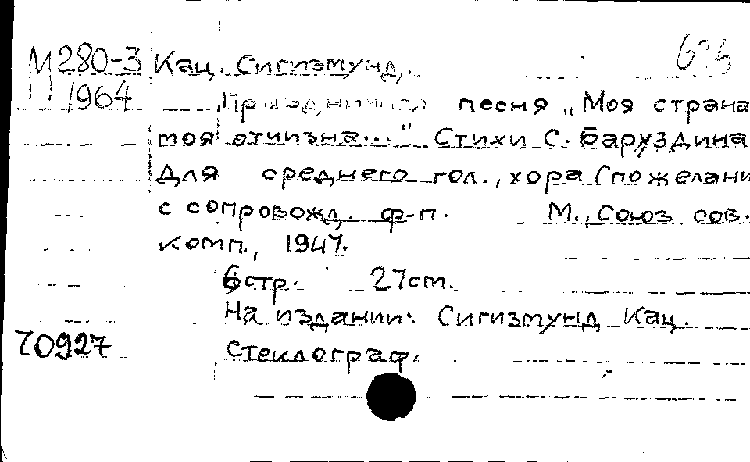 М 280-3 Кац. Сигизмунд.
1964 Праздничная песня „Моя страна
моя отчизна..." Стихи С. Баруздина
Для среднего гол., хора (пожелани
с сопровожд. ф-п. М., Союз сов.
комп., 1947.
6стр. 27см.
На издании: Сигизмунд Кац.
70927
Стеклограф.